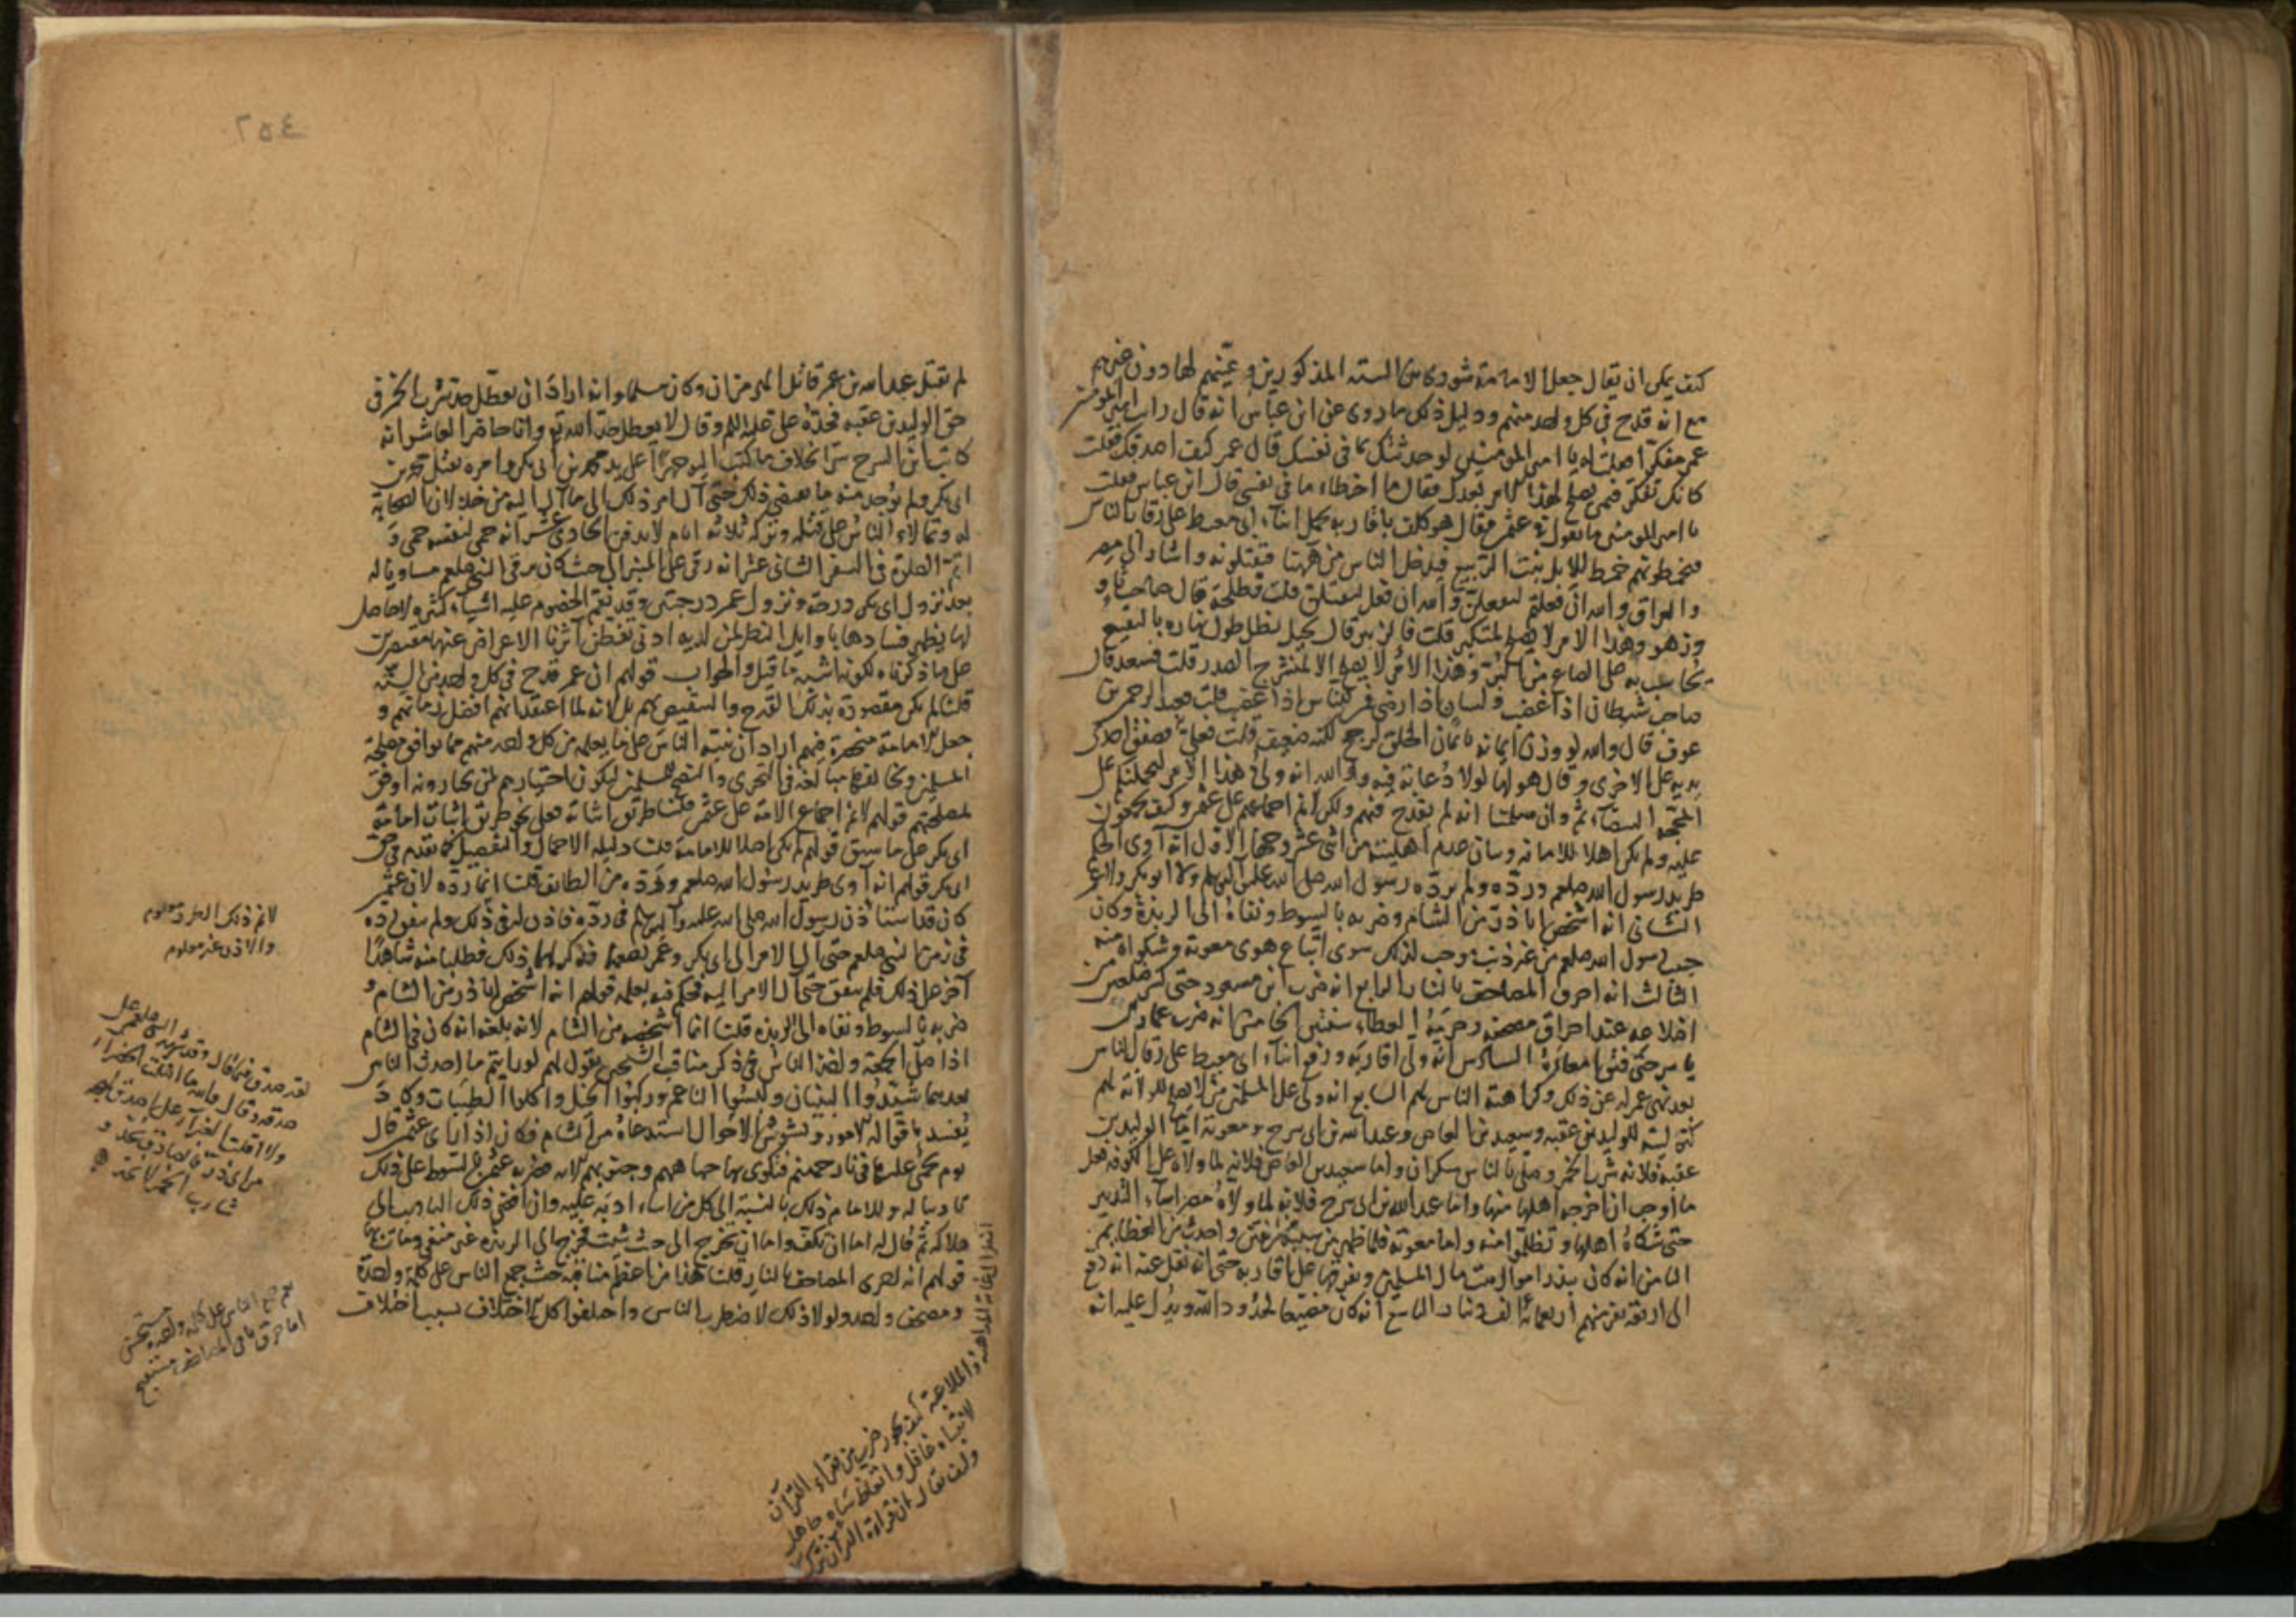 كيف يمكن ان يقال جعل الامامة شورى بين الستة المذكورين وعينهم لها دون غيرهم
مع انه قدح فى كل واحد منهم ودليل ذلك ما روى عن ابن عباس انه قال رايت امير المؤمنين
عمر مفكرا فقلت له يا امير المؤمنين لو حدثتك بما فى نفسك قال عمر كيف اصدقك فقلت
كانك تفكر فيمن يصلح لهذا الامر بعدك فقال ما اخطاء ما فى نفسى قال ابن عباس فقلت
يا امير المؤمنين ما تقول فى عثمن فقال هو كلف باقاربه يحمل ابناء ابى معيط على رقاب الناس
فيخطونهم خضم الابل نبت الربيع فيدخل الناس من ههنا فيقتلونه واشار الى مصر
والعراق والله ان فعلتم ليفعلن والله ان فعل ليقتلن قلت فطلحة قال صاحب بأو
وزهو وهذا الامر لا يصلح لمتكبر قلت فالزبير قال بخيل يظل طول نهاره بالبقيع
يحاسب على الصاع من البر وهذا الامر لا يصلح الا لمنشرح الصدر قلت فسعد قال
صاحب شيطان اذا غضب وانسان اذا رضى قلت فعبد الرحمن بن
عوف قال والله لو وزن ايمانه بايمان الخلق لرجح لكنه ضعيف قلت فعلى فصفق احدى
يديه على الاخرى وقال هو لها لولا دعابة فيه ووالله انه ولى هذا الامر ليحملنكم على
المحجة البيضاء ثم وان سلمنا انه لم يقدح فيهم ولكن لانم اجماعهم على عثمن وكيف يجمعون
عليه ولم يكن اهلا للامامة وبيان عدم اهليته من اثنى عشر وجها الاول انه آوى الحكم
طريد رسول الله صلعم ورده ولم يرده رسول الله صلى الله عليه وآله وسلم ولا ابو بكر ولا عمر
الثانى انه اشخص اباذر من الشام وضربه بالسوط ونفاه الى الربذة وكان
حبيب رسول الله صلعم من غير ذنب وجب لذلك سوى اتباع هوى معوية وشكواه منه
الثالث انه احرق المصاحف بالنار الرابع انه ضرب ابن مسعود حتى كسر ضلعين من
اضلاعه عند احراق مصحفه وحرمه العطاء سنتين الخامس انه ضرب عمار بن
ياسر حتى فتق امعاءه السادس انه ولى اقاربه ورفع ابناء ابى معيط على رقاب الناس
بعد نهى عمر له عن ذلك وكراهة الناس لهم السابع انه ولى على المسلمين من لا يصلح للولاية لهم
كتوليته للوليد بن عقبه وسعيد بن العاص وعبد الله بن ابى سرح ومعوية اما الوليد بن
عقبة فلانه شرب الخمر وصلى بالناس سكران واما سعيد بن العاص فلانه لما ولاه على الكوفة فعل
ما اوجب ان اخرجه اهلها منها واما عبد الله بن ابى سرح فلانه لما ولاه مصر اساء التدبير
حتى شكاه اهلها وتظلموا منه واما معوية فلما ظهر من سببه من الفتن واحدث من الخطايا
الثامن انه كان يبذر اموال بيت مال المسلمين ويفرقها على اقاربه حتى انه نقل عنه انه دفع
الى اربعة نفر منهم اربعمائة الف دينار التاسع انه كان مضيعا لحدود الله ويدل عليه انه
لم يقتل عبيد الله بن عمر قاتل الهرمزان وكان مسلما وانه اراد ان يعطل حد شرب الخمر فى
حق الوليد بن عقبه فحده على عليه السلم وقال لا يعطل حد الله تع وانا حاضر العاشر انه
كاتب ابن السرح سرا بخلاف ما كتب اليه جهرا على يد محمد بن ابى بكر وامره بقتل محمد بن
ابى بكر ولم يوجد منه ما يقتضى ذلك حتى آل امر ذلك الى ما آل اليه من خذلان الصحابة
له وتمالاء الناس على قتله وتركه ثلاثة ايام لا يدفن الحادى عشر انه حمى لنفسه حمى و
اتم الصلوة فى السفر الثانى عشر انه رقى على المنبر الى حيث كان يرقى النبى صلعم مساويا له
بعد نزول ابى بكر درجة ونزول عمر درجتين وقد نقم الخصوم عليه اشياء كثيرة لا حاصل
لها يظهر فسادها باوايل النظر لمن لديه ادنى تفطن آثرنا الاعراض عنها مقتصرين
على ما ذكرناه لكونه اشبه ما قيل والجواب قولهم ان عمر قدح فى كل واحد من الستة
قلنا لم يكن مقصوده بذلك القدح والتنقيص لهم بل لانه لما اعتقد انهم افضل زمانهم و
جعل الامامة منحصرة فيهم اراد ان ينبه الناس على ما يعلمه من كل واحد منهم مما يوافق مصلحة
المسلمين ويخالفها مبالغة فى التحرى والنصح للمسلمين ليكون اختيارهم لمن يختارونه اوفق
لمصلحتهم قولهم لانم اجماع الامة على عثمن قلنا طريق اثباته فعلى نحو طريق اثبات امامة
ابى بكر على ما سبق قولهم لم يكن اهلا للامامة قلنا دليله الاجمال والتفصيل كما تقدم فى حق
ابى بكر قولهم انه آوى طريد رسول الله صلعم ورده من الطائف قلنا انما رده لان عثمن
كان قد استأذن رسول الله صلى الله عليه وآله وسلم فى رده فاذن له فى ذلك ولم يتفق رده
فى زمن النبى صلعم حتى آل الامر الى ابى بكر وعمر بعده فذكر لهما ذلك فطلبا منه شاهدا
آخر على ذلك فلم يتفق حتى آل الامر اليه فحكم فيه بعلمه قولهم انه اشخص اباذر من الشام و
ضربه بالسوط ونفاه الى الربذة قلنا انما اشخصه من الشام لانه بلغه انه كان فى الشام
اذا صلى الجمعة واخذ الناس فى ذكر مناقب الشيخين يقول لهم لو رايتم ما احدث الناس
بعدهما شيدوا البنيان ولبسوا الناعم وركبوا الخيل واكلوا الطيبات وكاد
يفسد باقواله الامور ويشوش الاحوال استدعاه من الشام فكان اذا رأى عثمن قال
يوم يحمى عليها فى نار جهنم فتكوى بها جباههم وجنوبهم الآية فضربه عثمن بالسوط على ذلك
تاديبا له وللامام ذلك بالنسبة الى كل من اساء ادبه عليه وان افضى ذلك التاديب الى
هلاكه ثم قال له اما ان تكف واما ان تخرج الى حيث شئت فخرج الى الربذة غير منفى ومات بها
قولهم انه احرق المصاحف بالنار قلنا هذا من اعظم مناقبه حيث جمع الناس على كلمة واحدة
ومصحف واحد ولولا ذلك لاضطرب الناس واختلفوا كل الاختلاف بسبب اختلاف
لانم ذلك
والاذن غير معلوم
لقد صدق فيما قال وقد شهد النبى صلعم على
صدقه وقال والله ما اظلت الخضراء
ولا اقلت الغبراء على اصدق لهجة
من ابى ذر
شارب الخمر لا يحد
جمع الناس على كلمة واحدة مستحسن
اما حرق المصاحف مستقبح
كيف يجوز ضرب من قراء القرآن